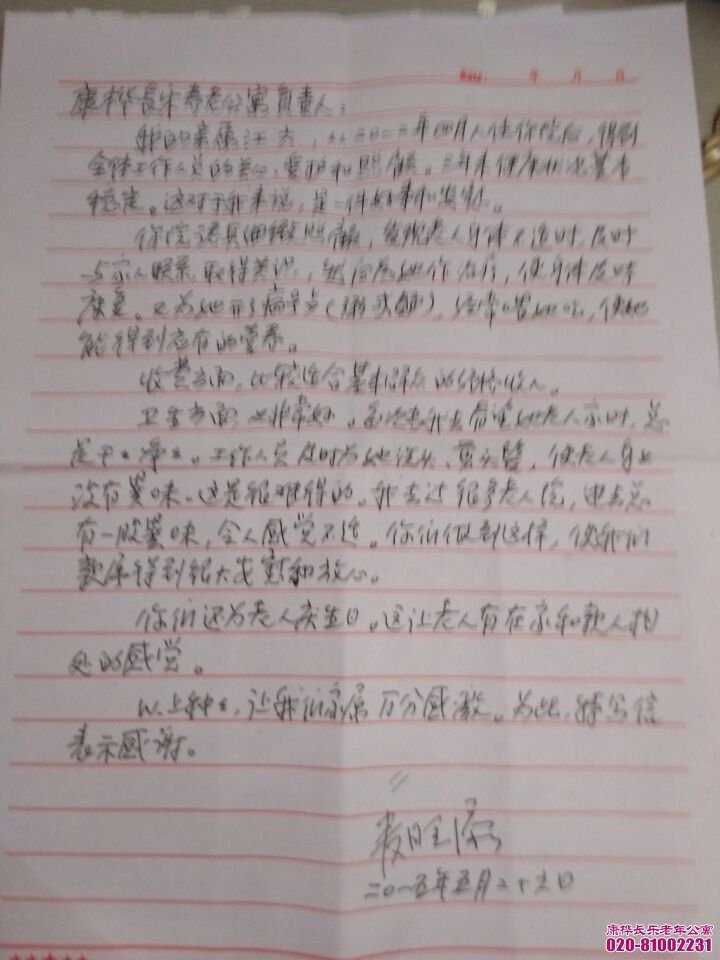 Date: 年 月 日
康桦长乐养老公寓负责人：
我的亲属汪 ，从二〇一二年四月入住你院后，得到
全体工作人员的关心、爱护和照顾。三年来健康状况基本
稳定。这对于我来说，是一件好事和
你院认真细致照顾，发现老人身体不适时，及时
与家人联系，取得共识，然后为她作治疗，使身体及时
康复。又为她开了病号 （粥或 ），经常喂她吃，使她
能得到应有的营养。
收费方面，比较适合基本群众的经济收入。
卫生方面，也非常好。每次去我去看望她老人家时，总
是干干净净。工作人员及时为她洗头、剪头发，使老人身上
没有异味。这是很难得的。我去过很多老人院，进去总
有一股异味，令人感觉不适。你们做到这样，使我们
亲属得到很大安慰和放心。
你们还为老人庆生日。这让老人有在家和亲人相
处的感觉。
以上种种，让我们家属万分感激。为此，特写信
表示感谢。
二〇一五年五月二十六日
康桦长乐老年公寓
020-81002231